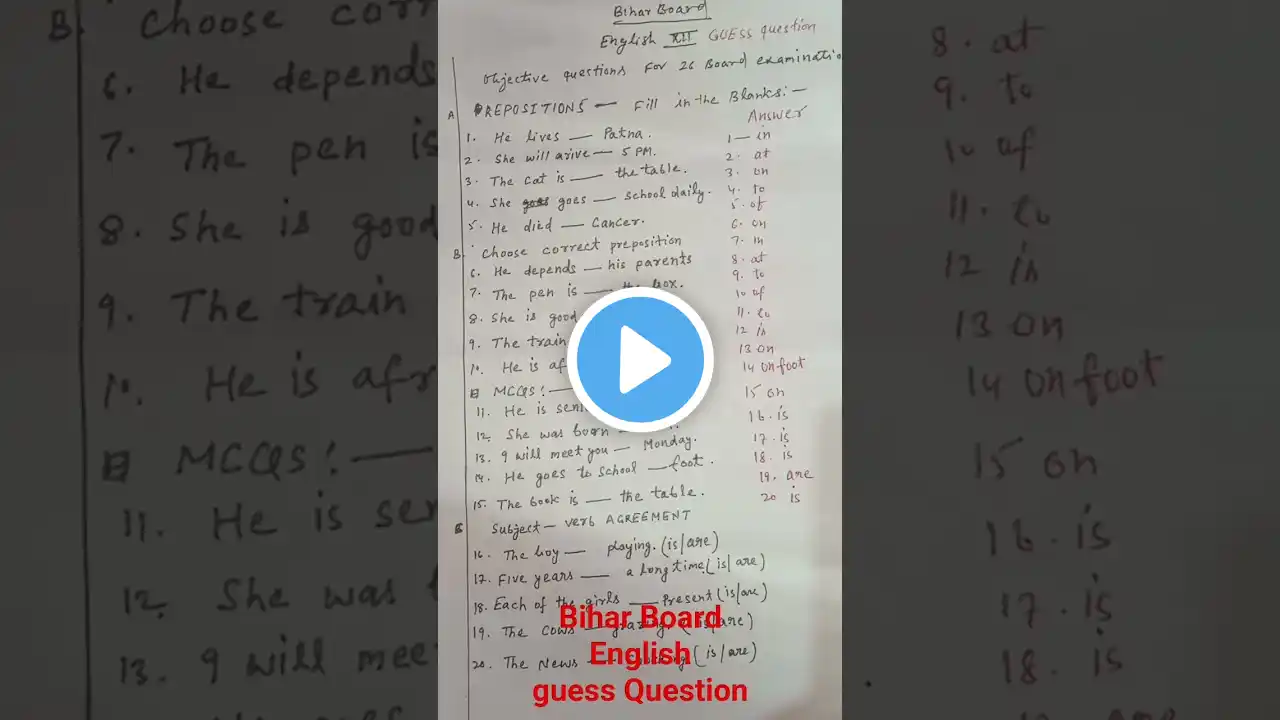 Bihar Board
English XII GUESS question
Objective questions For 26 Board examinatio
A PREPOSITIONS — Fill in the Blanks:—
Answer
1. He lives — Patna. 1 — in
2. She will arive — 5 PM. 2. at
3. The cat is — the table. 3. on
4. She goes — school daily. 4. to
5. He died — Cancer. 5. of
B. Choose correct preposition 6. on
6. He depends — his parents 7. in
7. The pen is — the box. 8. at
8. She is good 9. to
9. The train 10 of
10. He is afr 11. to
MCQs!— 12 in
11. He is seni 13 on
12. She was born 14 on foot
13. I will meet you — Monday. 15 on
14. He goes to school — foot. 16. is
15. The book is — the table. 17. is
Subject — verb AGREEMENT 18. is
16. The boy — playing. (is/are) 19. are
17. Five years — a long time. (is/are) 20 is
18. Each of the girls — Present (is/are)
19. The cows — (is/are)
20. The News — (is/are)
Bihar Board
English
guess Question
B. Choose corr
6. He depends
7. The pen is
8. She is good
9. The train
10. He is afr
MCQs!—
11. He is sen
12. She was
13. I will mee
8. at
9. to
10 of
11. to
12 in
13 on
14 on foot
15 on
16. is
17. is
18. is